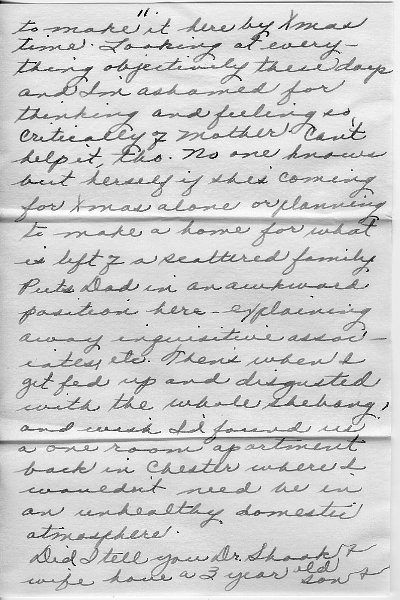 "
to make it here by Xmas
time. Looking at every-
thing objectively these days
and I'm ashamed for
thinking and feeling so
critically of Mother. Can't
help it, tho. No one knows
but herself if she's coming
for Xmas alone or planning
to make a home for what
is left of a scattered family
Puts Dad in an awkward
position here - explaining
away inquisitive assoc-
iates, etc. Thens when I
get fed up and disgusted
with the whole shebang,
and wish I'd found us
a one room apartment
back in Chester where I
wouldn't need be in
an unhealthy domestic
atmosphere.
Did I tell you Dr. Shook &
wife have a 3 year old son &